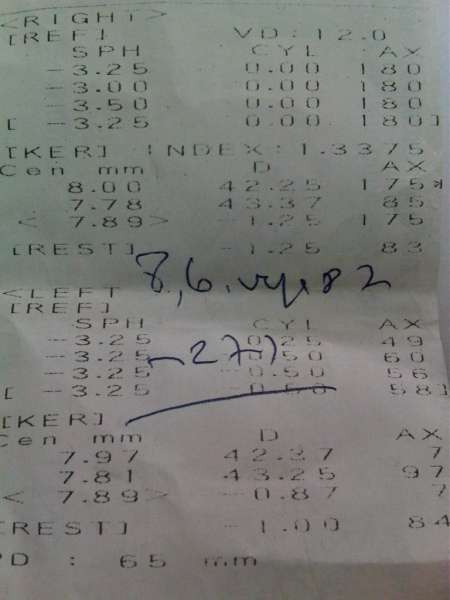 <RIGHT>
[REF] VD:12.0
SPH CYL AX
-3.25 0.00 180
-3.00 0.00 180
-3.50 0.00 180
[ -3.25 0.00 180]
[KER] INDEX:1.3375
Cen mm D AX
8.00 42.25 175*
7.78 43.37 85
< 7.89> -1.25 175
[REST] -1.25 83
8,6.
<LEFT
[REF]
SPH CYL AX
-3.25 -0.25 49
-3.25 -0.50 60
-3.25 -0.50 56
[ -3.25 -0.50 58]
[KER]
Cen mm D AX
7.97 42.37 7
7.81 43.25 97
< 7.89> -0.87 7
[REST] -1.00 84
PD : 65 mm